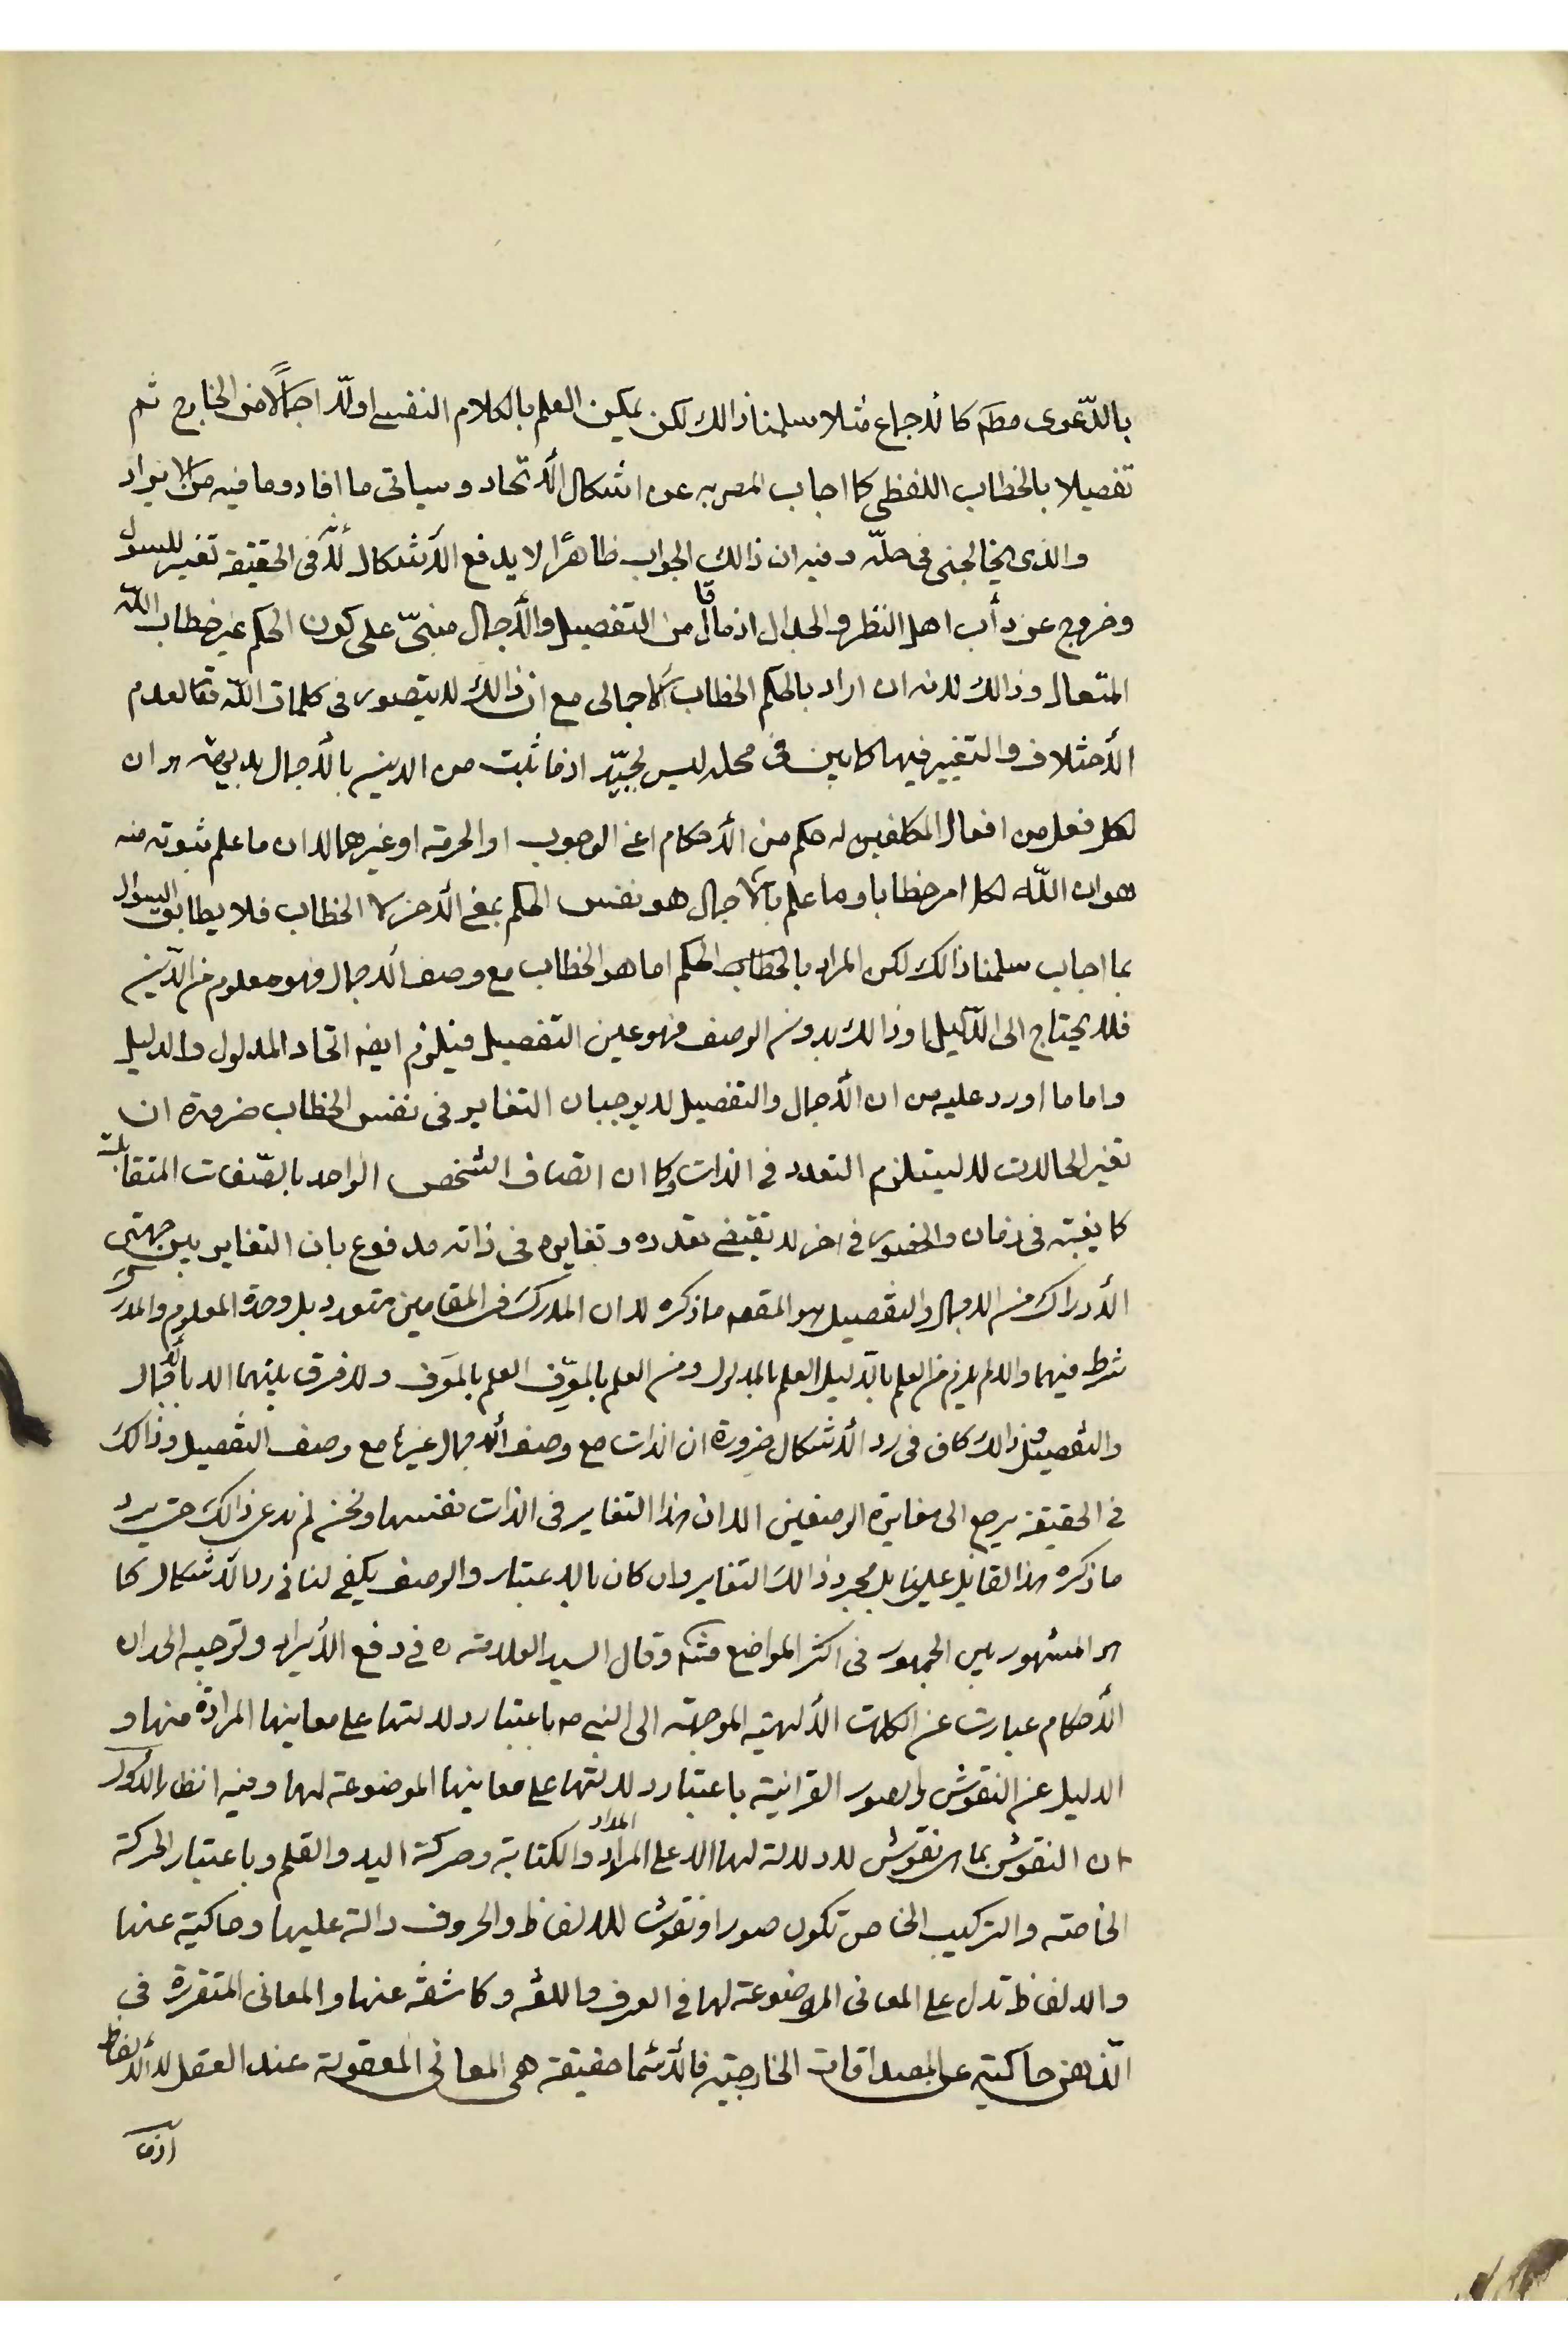 بالدّعوى مطم كالاجماع مثلا سلمنا ذالك لكن يمكن العلم بالكلام النفسے اولاّ اجمالاً من الخارج ثم
تفصيلا بالخطاب اللفظى كما اجاب المصر به عن اشكال الاتحاد و سياتى ما افاد وما فيه من الايراد
والذى يخالجنى فى حلّه و فيه ان ذالك الجواب ظاهرًا لا يدفع الاشكال لانّه فى الحقيقة تغيير للسول
وخروج عن دأب اهل النظر والجدال اذ ما قال من التفصيل والاجمال مبنىّ على كون الحكم غير خطاب اللّه
المتعال وذالك لانه ان اراد بالحكم الخطاب الاجمالى مع ان ذالك لا يتصور فى كلمات اللّه تعا لعدم
الاختلاف والتغيير فيها كما بين فى محله ليس بجيّد اذ ما ثبت من الدين بالاجمال بلا بديهة هو ان
لكل فعل من افعال المكلفين له حكم من الاحكام اعنى الوجوب او الحرمة او غيرهما لا ان ما علم ثبوته منه
هو ان اللّه لكل امر خطابا وما علم بالاجمال هو نفس الحكم بمعنى الاخر لا الخطاب فلا يطابق السؤال
بما اجاب سلمنا ذالك لكن المراد بالخطاب الحكم اما هو الخطاب مع وصف الاجمال فهو معلوم من الدّين
فلا يحتاج الى الدّليل او ذالك بدون الوصف فهو عين التفصيل فيلزم ايضا اتحاد المدلول والدليل
واما ما اورد عليه من ان الاجمال والتفصيل لا يوجبان التغاير فى نفس الخطاب ضرورة ان
تغير الحالات لا ليستلزم التعدد فى الذات كما ان اتصاف الشخص الواحد بالصّفات المتقابلة
كالغيبة فى زمان والحضور فى اخر لا تقتضے تعدده و تغايره فى ذاته مدفوع بان التغاير بين جهتى
الادراك من الاجمال والتفصيل هو المقصم ما ذكره لا ان المدرك فى المقامين متعدد بل وحدة المعلوم والمدرك
شرط فيهما والا لم يلزم من العلم بالدليل العلم بالمدلول ومن العلم بالمعرِّف العلم بالمعرَف ولا فرق بينهما الا بالاجمال
والتفصيل وذالك كاف فى رد الاشكال ضرورة ان الذات مع وصف الاجمال غيرها مع وصف التفصيل وذالك
فى الحقيقة يرجع الى مغايرة الوصفين لا ان هذا التغاير فى الذات نفسها ونحن لم ندع ذالك حتى يرد
ما ذكره هذا القائل علينا بل مجرد ذالك التغاير وان كان بالاعتبار والوصف يكفى لنا فى رد الاشكال كما
هو المشهور بين الجمهور فى اكثر المواضع وقال السيد العلامة ره فى دفع الايراد وتوجيه الحد ان
الاحكام عبارت عن الكلمات الالهية الموجهة الى النبى ص باعتبار دلالتها على معانيها المرادة منها و
الدليل عن النقوش والصور القرانية باعتبار دلالتها على معانيها الموضوعة لها وفيه انظار الاول
ان النقوش بما هى نقوش لا دلالة لها الا على المداد والكتابة وحركة اليد والقلم وباعتبار الحركة
الخاصة والتركيب الخاص تكون صورا ونقوشا للالفاظ والحروف دالة عليها وحاكية عنها
والالفاظ تدل على المعانى الموضوعة لها فى العرف واللغة وكاشفة عنها والمعانى المتقررة فى
الذهن حاكية عن المصداقات الخارجية فالاشما حقيقة هى المعانى المعقولة عند العقل لا الالفاظ